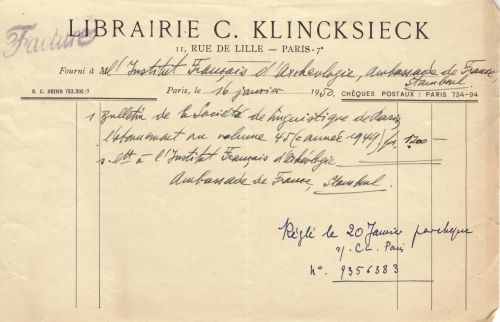 Facture
LIBRAIRIE C. KLINCKSIECK
11, RUE DE LILLE — PARIS-7e
Fourni à M l'Institut Français d'Archéologie, Ambassade de France
Stamboul
R. C. SEINE 793.306/7
Paris, le 16 janvier 1950.
CHÈQUES POSTAUX : PARIS 734-94
1 Bulletin de la Société de linguistique de Paris
abonnement au volume 45 (= année 1949) fr. 1200—
s/ à l'Institut Français d'Archéologie
Ambassade de France, Stamboul
Réglé le 20 Janvier par chèque
s/ Paris
N° 9356383